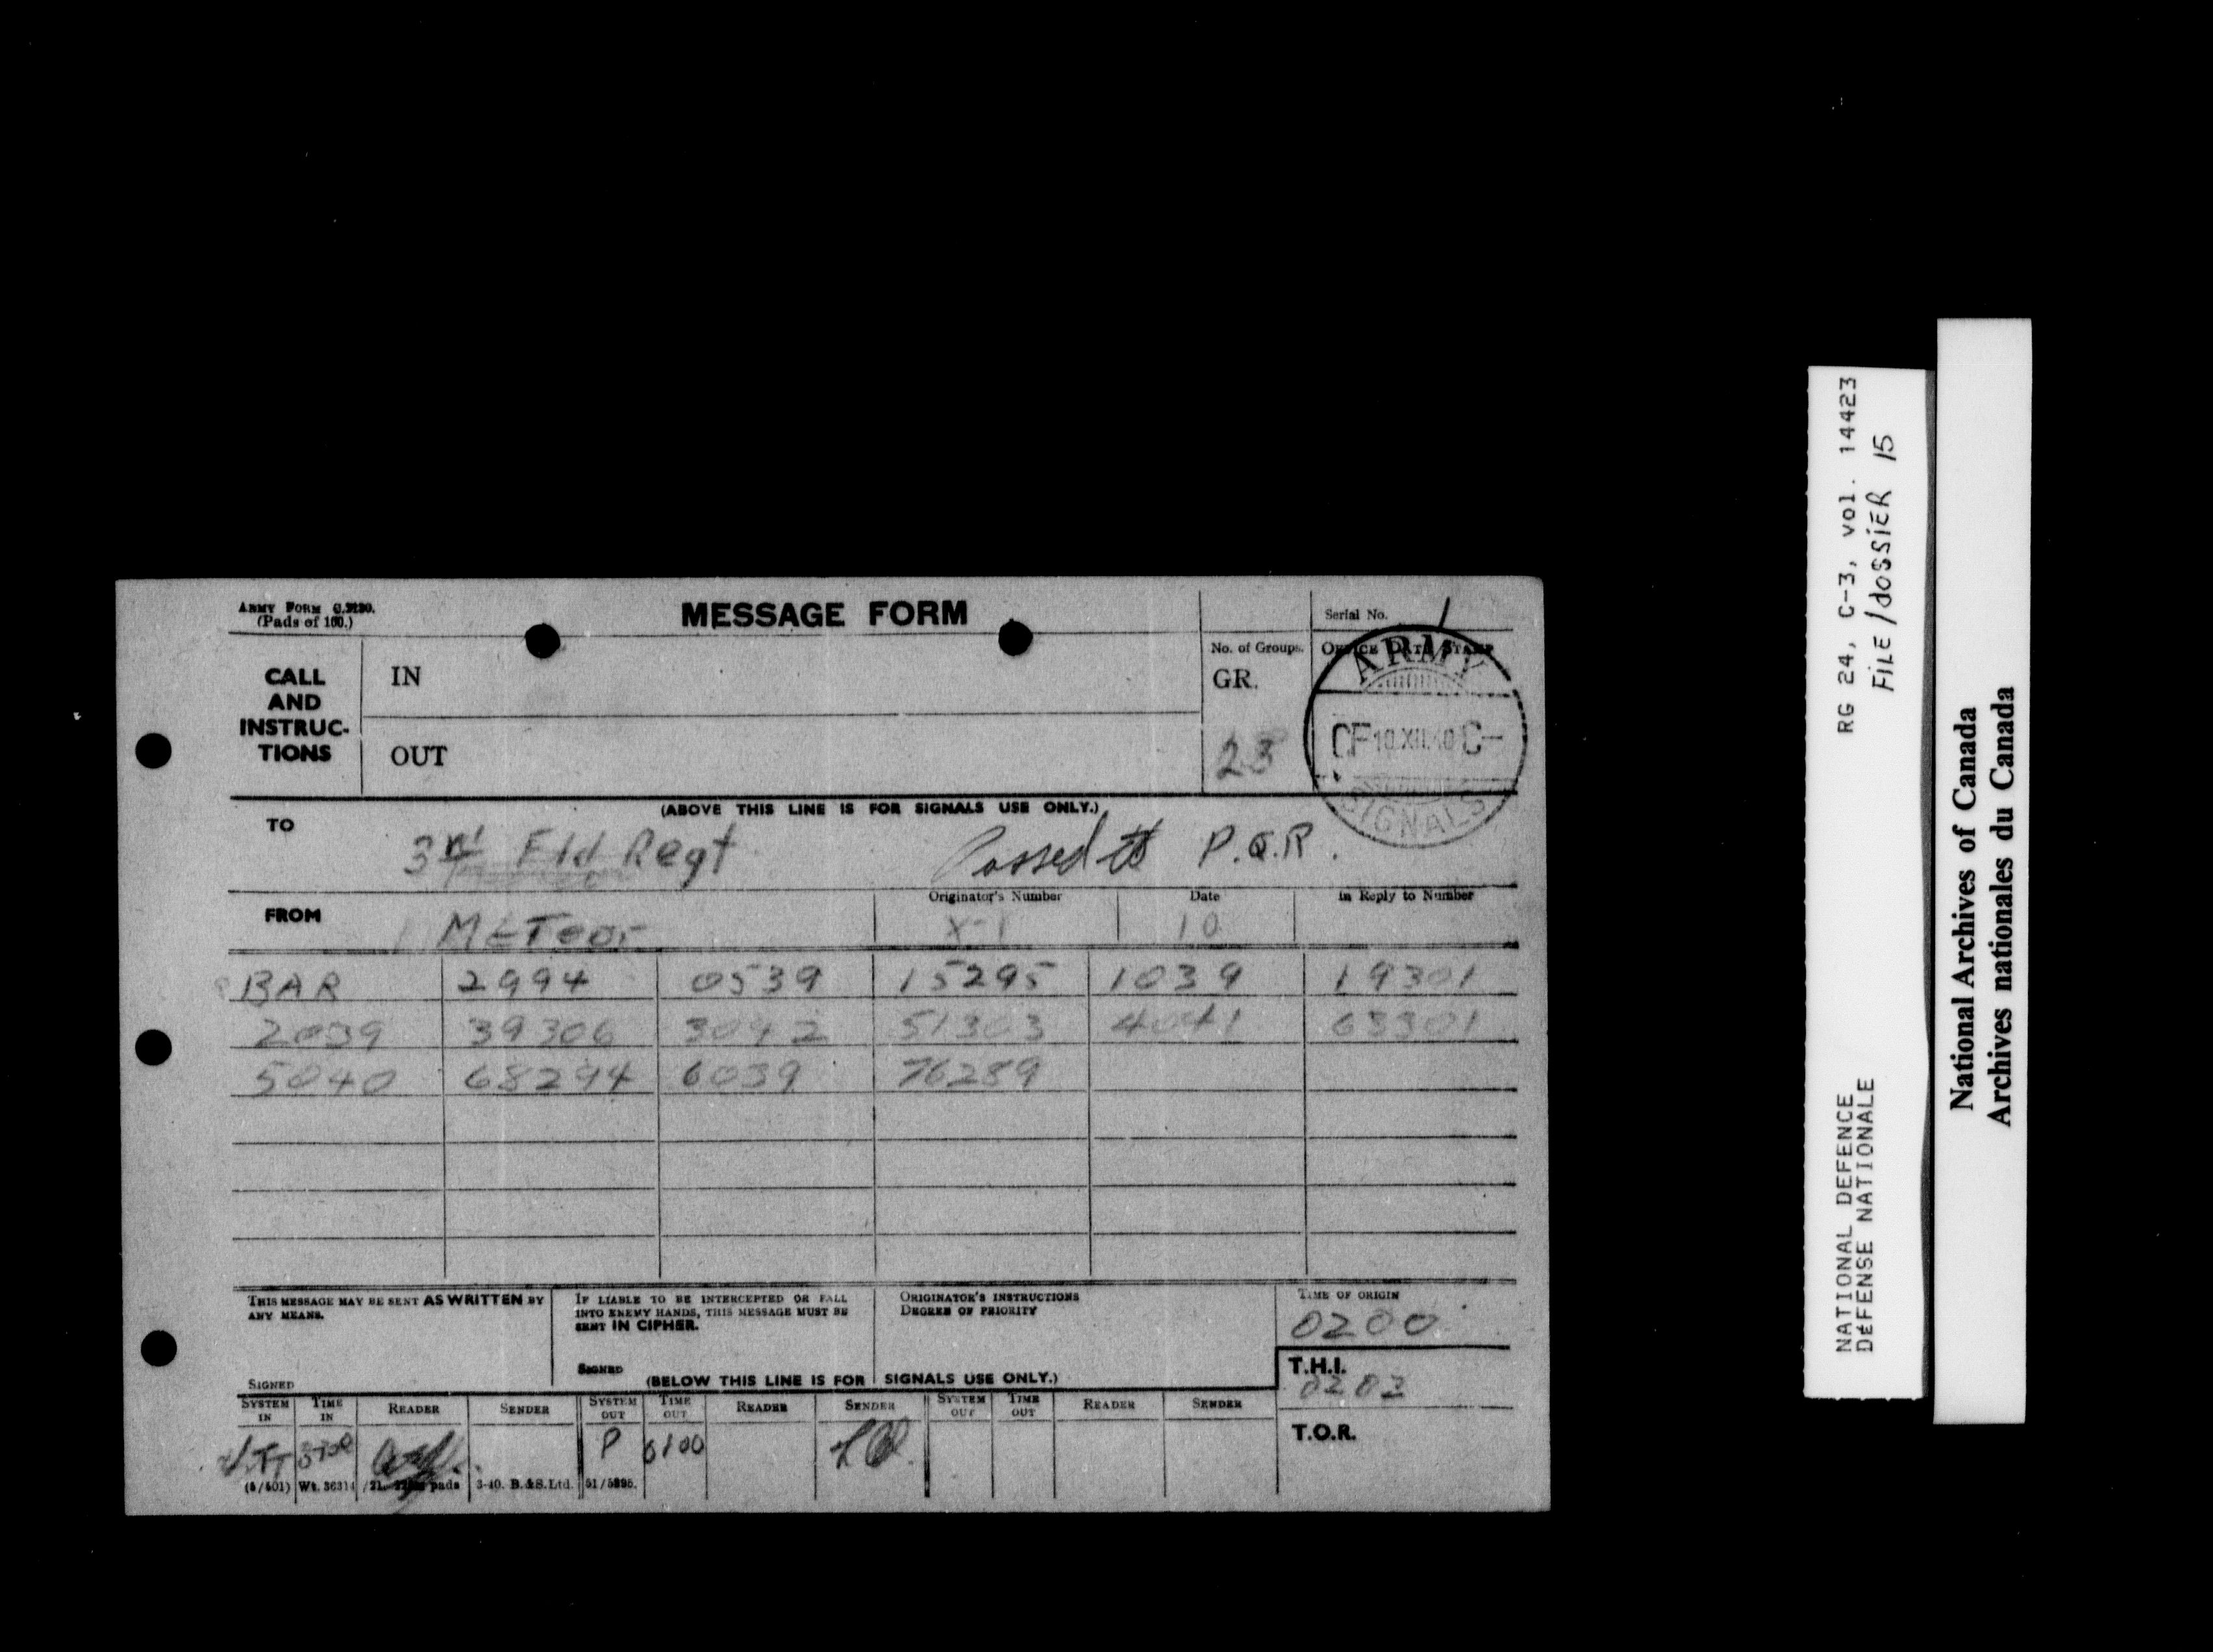 ARMY FORM C.2130.
(Pads of 100.)
MESSAGE FORM
Serial No. 1
CALL AND INSTRUC-TIONS
IN
OUT
No. of Groups.
GR.
23
OFFICE DATE STAMP
ARMY
CF 10.XII.40 C-
SIGNALS
(ABOVE THIS LINE IS FOR SIGNALS USE ONLY.)
TO 3rd Fld Regt Passed to P.Q.R.
FROM METeor
Originator's Number X-1
Date 10
In Reply to Number
BAR 2994 0539 15295 1039 19301
2039 39306 3042 51303 4041 63301
5040 68294 6039 76289
THIS MESSAGE MAY BE SENT AS WRITTEN BY
ANY MEANS.
SIGNED
IF LIABLE TO BE INTERCEPTED OR FALL
INTO ENEMY HANDS, THIS MESSAGE MUST BE
SENT IN CIPHER.
SIGNED
ORIGINATOR'S INSTRUCTIONS
DEGREE OF PRIORITY
TIME OF ORIGIN
0200
T.H.I.
0202
T.O.R.
(BELOW THIS LINE IS FOR SIGNALS USE ONLY.)
SYSTEM IN TIME IN READER SENDER SYSTEM OUT TIME OUT READER SENDER SYSTEM OUT TIME OUT READER SENDER
P 0100
(5/501) Wt. 36314 pads 3-40. B.&S.Ltd. 51/5895.
RG 24, C-3, vol. 14423
FILE/dossier 15
NATIONAL DEFENCE
DÉFENSE NATIONALE
National Archives of Canada
Archives nationales du Canada